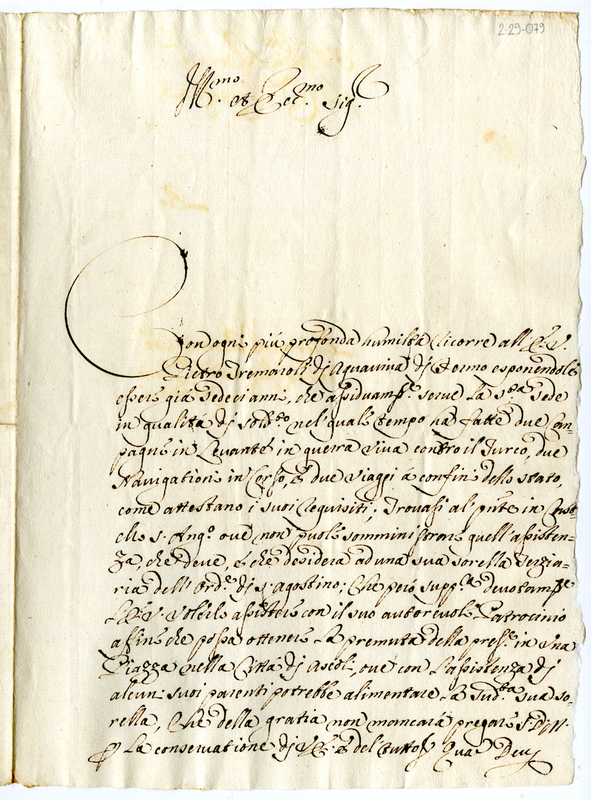 2-29-079
Ill.mo et Ecc.mo Sig.r
Con ogni più profonda humiltà ricorre all'E.V.
Pietro Tremaroli di Aquaviva di Fermo esponendole
essere già sedeci anni, che assiduam.te serve la S.ta Sede
in qualità di sold.to nel quale tempo ha fatte due Cam-
pagne in Levante in guerra viva contro il Turco, due
Navigationi in Corso, e due viaggi à confini dello stato,
come attestano i suoi requisiti; trovasi al p'nte in Cast-
ello S. Ang.o ove non puole somministrare quell'assisten-
za, che deve, e che desidera ad una sua sorella Terzia-
ria dell'Ord.e di S. Agostino; Che però supp.ca devotam.te
L'E.V. volerlo assistere con il suo autorevole Patrocinio
affine che possa ottenere la premuta della press.e in una
Piazza nella Città di Ascoli, ove con l'assistenza di
alcuni suoi parenti potrebbe alimentare la sud.ta sua so-
rella, Che della gratia non mancarà pregare S.D.M.
p la conservatione di V.E. e del tutto Qua Deus